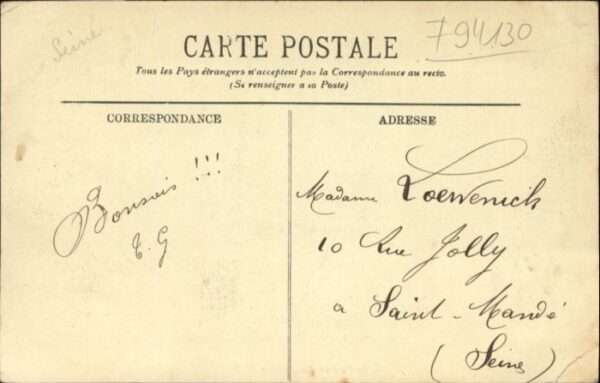 Seine
794130
CARTE POSTALE
Tous les Pays étrangers n'acceptent pas la Correspondance au recto.
(Se renseigner à la Poste)
CORRESPONDANCE
ADRESSE
Bonsoir !!!
T. G
Madame Loewenich
10 Rue Jolly
a Saint-Mandé
(Seine)